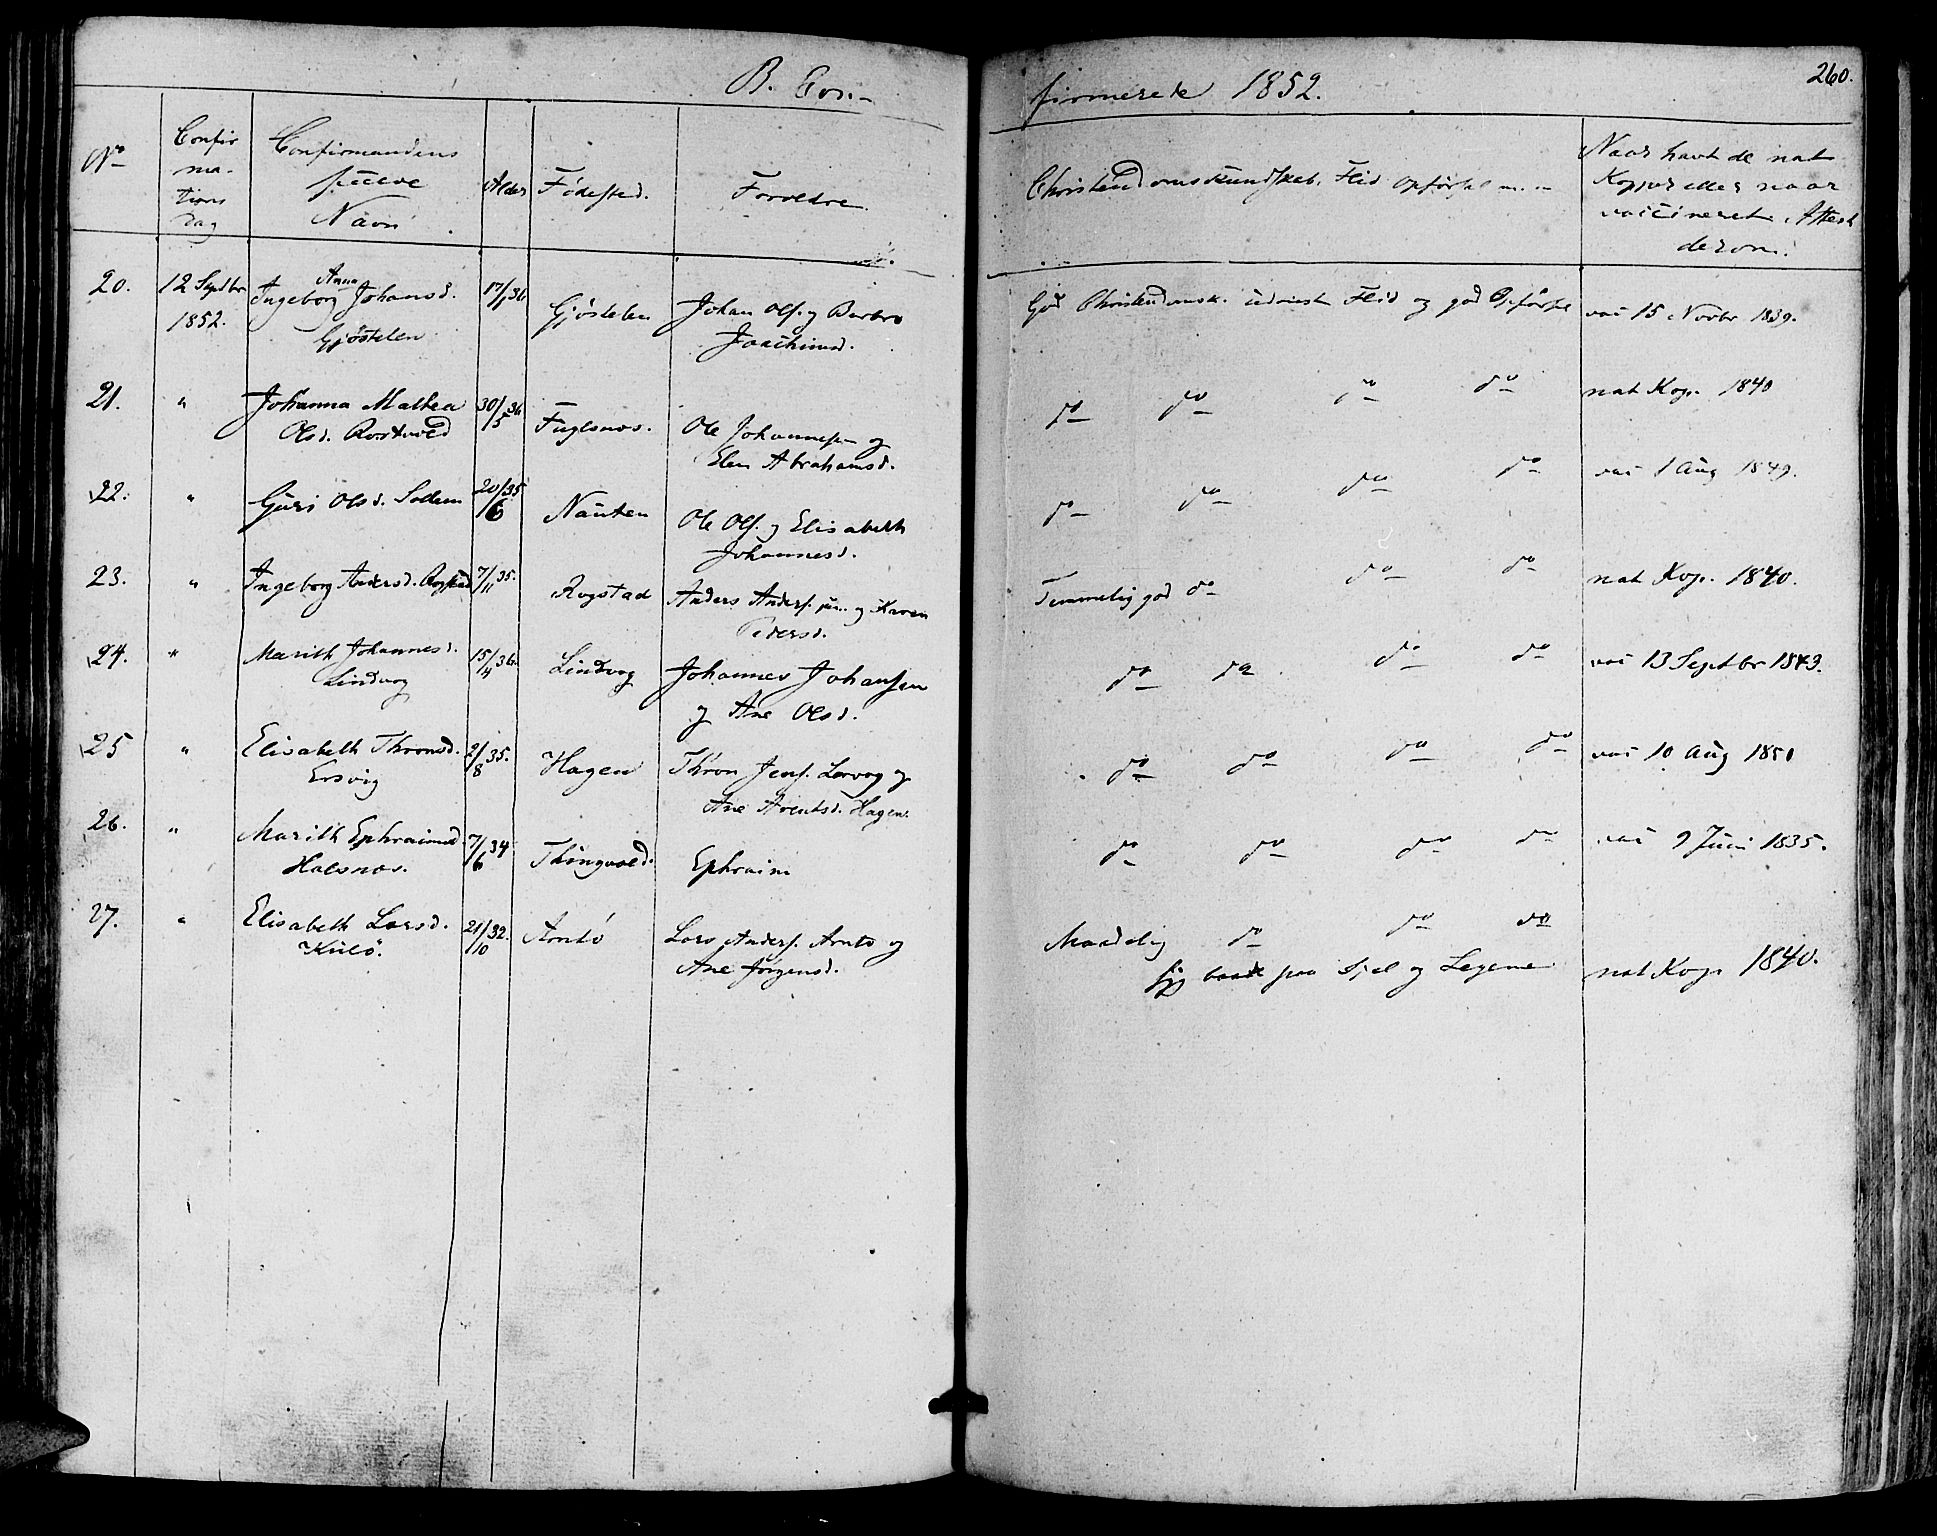 B. Con-
firmerede 1852.
260.
No
Confir
ma-
tions
dag
Confirmandens
fulde
Navn
Alder
Fødested.
Forældre
Christendomskundskab, Flid Opførsel m. m
Naar havt de nat
Kopper eller naar
vaccineret. Attest
derom.
20. 12 Septbr Ingeborg Anna Johansd. 17/1 36 Gjöstelen Johan Ols. og Barbro God Christendomsk. udvist Flid og god Opførsel vac 15 Novbr 1839.
1852. Gjöstelen Joachimsd.
21. " Johanna Mathea 30/5 36 Fuglsnæs. Ole Johanness. og do do do do nat Kop. 1840
Olsd. Elen Abrahamsd.
22. " Guri Olsd. Sollem 20/6 35 Nauten Ole Ols. og Elisabeth do do do do vac 1 Aug 1849.
Johannesd.
23. " Ingeborg Andersd. Rogstad 7/11 35. Rogstad Anders Anders. jun. og Karen Temmelig god do do do nat Kop. 1840.
Pedersd.
24. " Marith Johannesd. 15/4 36. Lindvog Johannes Johansen do do do do vac 13 Septbr 1843.
Lindvog og Ane Olsd.
25 " Elisabeth Thronsd. 2/8 35. Hagen Thron Jens. Larvog og do do do do vac 10 Aug 1851
Ersvig Ane Arentsd. Hagen.
26. " Marith Ephraimsd 7/6 34 Thingvold. Ephraim do do do do vac 9 Juni 1835.
Halsnæs.
27. " Elisabeth Larsd. 21/10 32. Arntö Lars Anders. Arntö og Maadelig do do do
Kulö. Ane Jörgensd. syg baade paa Sjel og Legeme nat Kop. 1840.